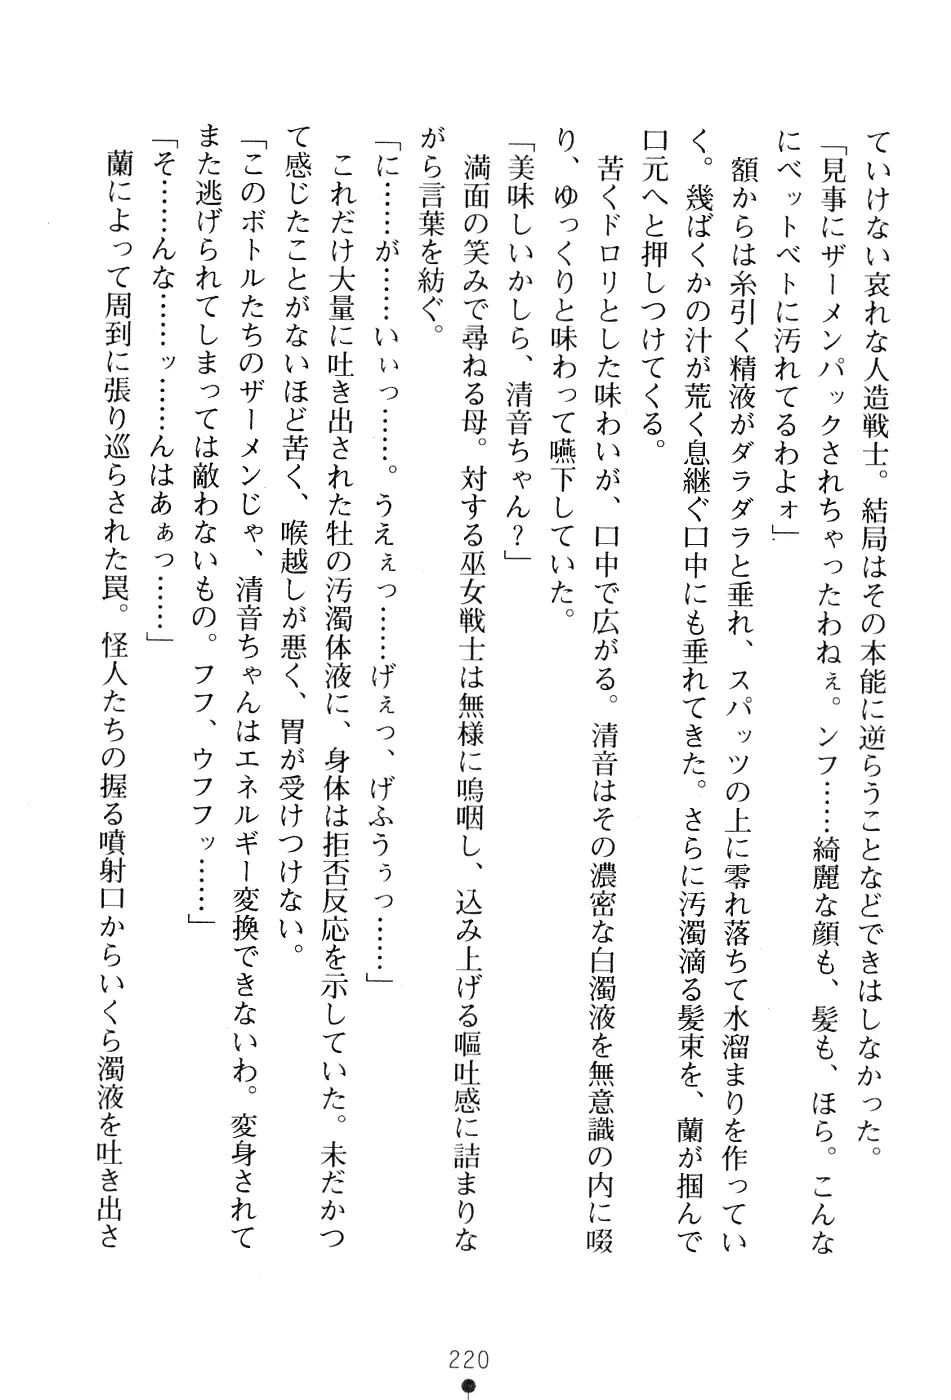 ていけない哀れな人造戦士。結局はその本能に逆らうことなどできはしなかった。
「見事にザーメンパックされちゃったわねぇ。ンフ……綺麗な顔も、髪も、ほら。こんな
にベットベトに汚れてるわよォ」
額からは糸引く精液がダラダラと垂れ、スパッツの上に零れ落ちて水溜まりを作ってい
く。幾ばくかの汁が荒く息継ぐ口中にも垂れてきた。さらに汚濁滴る髪束を、蘭が掴んで
口元へと押しつけてくる。
苦くドロリとした味わいが、口中で広がる。清音はその濃密な白濁液を無意識の内に啜
り、ゆっくりと味わって嚥下していた。
「美味しいかしら、清音ちゃん？」
満面の笑みで尋ねる母。対する巫女戦士は無様に嗚咽し、込み上げる嘔吐感に詰まりな
がら言葉を紡ぐ。
「に……が……いぃっ……。うえぇっ……げぇっ、げふうぅっ……」
これだけ大量に吐き出された牡の汚濁体液に、身体は拒否反応を示していた。未だかつ
て感じたことがないほど苦く、喉越しが悪く、胃が受けつけない。
「このボトルたちのザーメンじゃ、清音ちゃんはエネルギー変換できないわ。変身されて
また逃げられてしまっては敵わないもの。フフ、ウフフッ……」
「そ……んな……ッ……んはあぁっ……」
蘭によって周到に張り巡らされた罠。怪人たちの握る噴射口からいくら濁液を吐き出さ
220